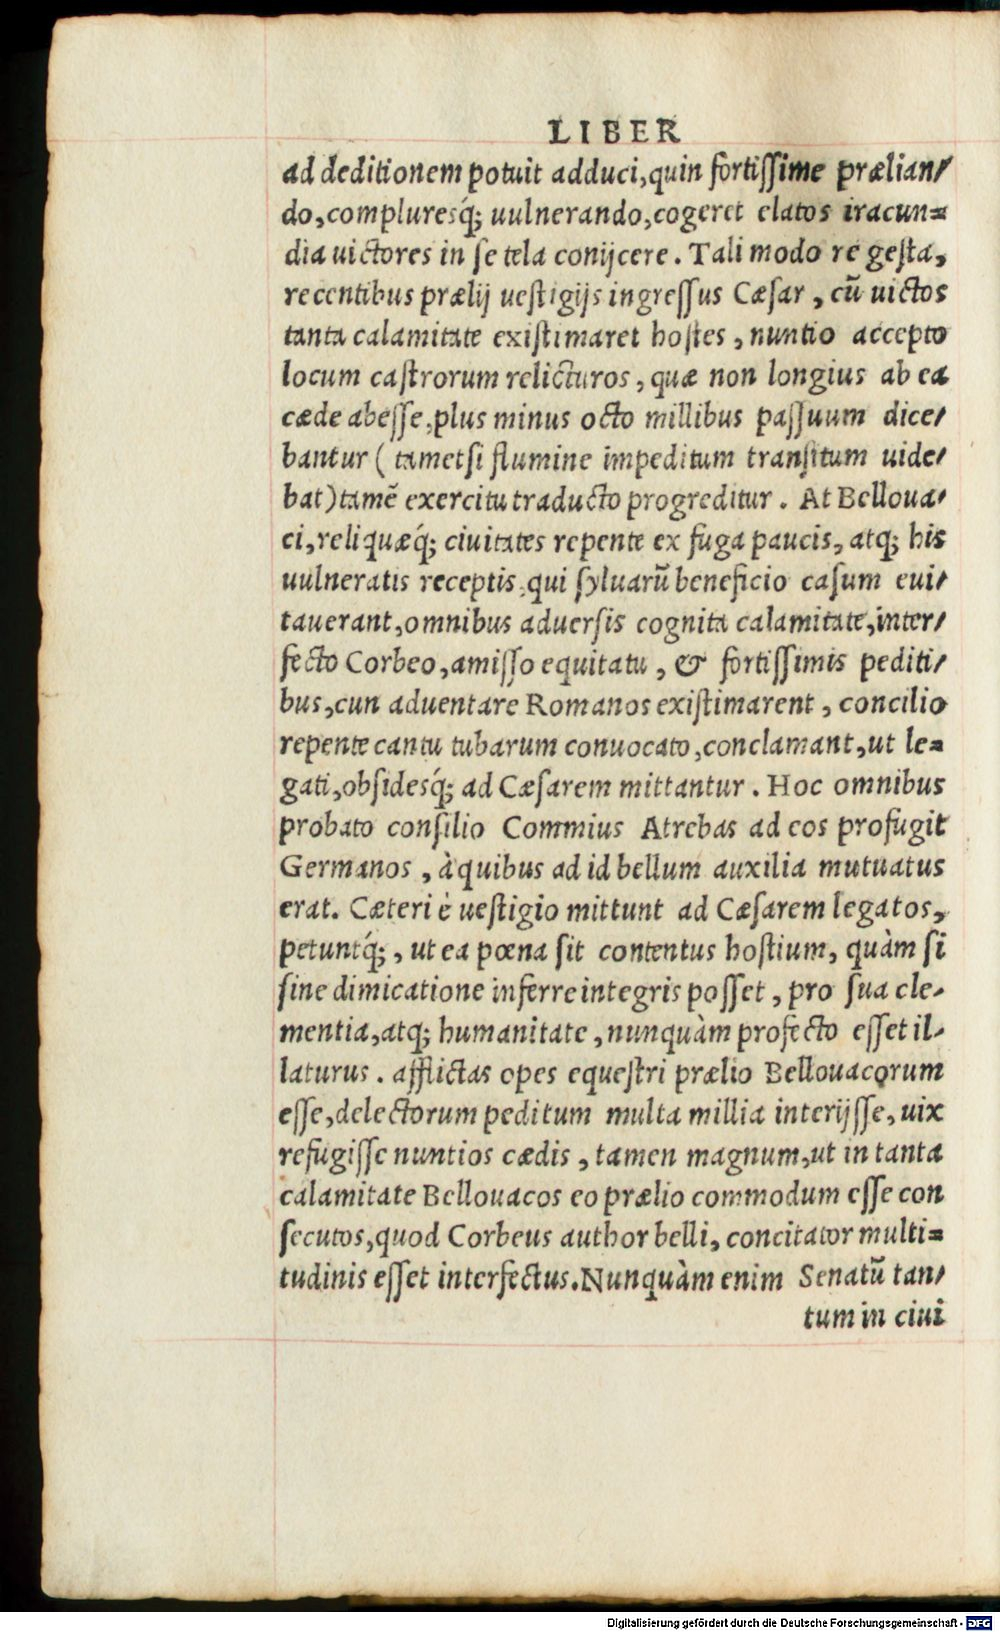 LIBER
ad deditionem potuit adduci, quin fortiſſime prælian/
do, compluresq́; uulnerando, cogeret elatos iracun=
dia uictores in ſe tela conijcere. Tali modo re geſta,
recentibus prælij ueſtigijs ingreſſus Cæſar, cū uictos
tanta calamitate exiſtimaret hoſtes, nuntio accepto
locum caſtrorum relicturos, quæ non longius ab ea
cæde abeſſe, plus minus octo millibus paſſuum dice/
bantur (tametſi flumine impeditum tranſitum uide/
bat) tamē exercitu traducto progreditur. At Belloua/
ci, reliquæq́; ciuitates repente ex fuga paucis, atq; his
uulneratis receptis, qui ſyluarū beneficio caſum eui/
tauerant, omnibus aduerſis cognita calamitate, inter/
fecto Corbeo, amiſſo equitatu, & fortiſſimis pediti/
bus, cun aduentare Romanos exiſtimarent, concilio
repente cantu tubarum conuocato, conclamant, ut le=
gati, obſidesq́; ad Cæſarem mittantur. Hoc omnibus
probato conſilio Commius Atrebas ad eos profugit
Germanos, à quibus ad id bellum auxilia mutuatus
erat. Cæteri è ueſtigio mittunt ad Cæſarem legatos,
petuntq́;, ut ea pœna ſit contentus hoſtium, quàm ſi
ſine dimicatione inferre integris poſſet, pro ſua cle/
mentia, atq; humanitate, nunquàm profecto eſſet il/
laturus. afflictas opes equeſtri prælio Bellouacorum
eſſe, delectorum peditum multa millia interijſſe, uix
refugiſſe nuntios cædis, tamen magnum, ut in tanta
calamitate Bellouacos eo prælio commodum eſſe con
ſecutos, quod Corbeus author belli, concitator multi=
tudinis eſſet interfectus. Nunquàm enim Senatū tan/
tum in ciui
Digitalisierung gefördert durch die Deutsche Forschungsgemeinschaft - DFG